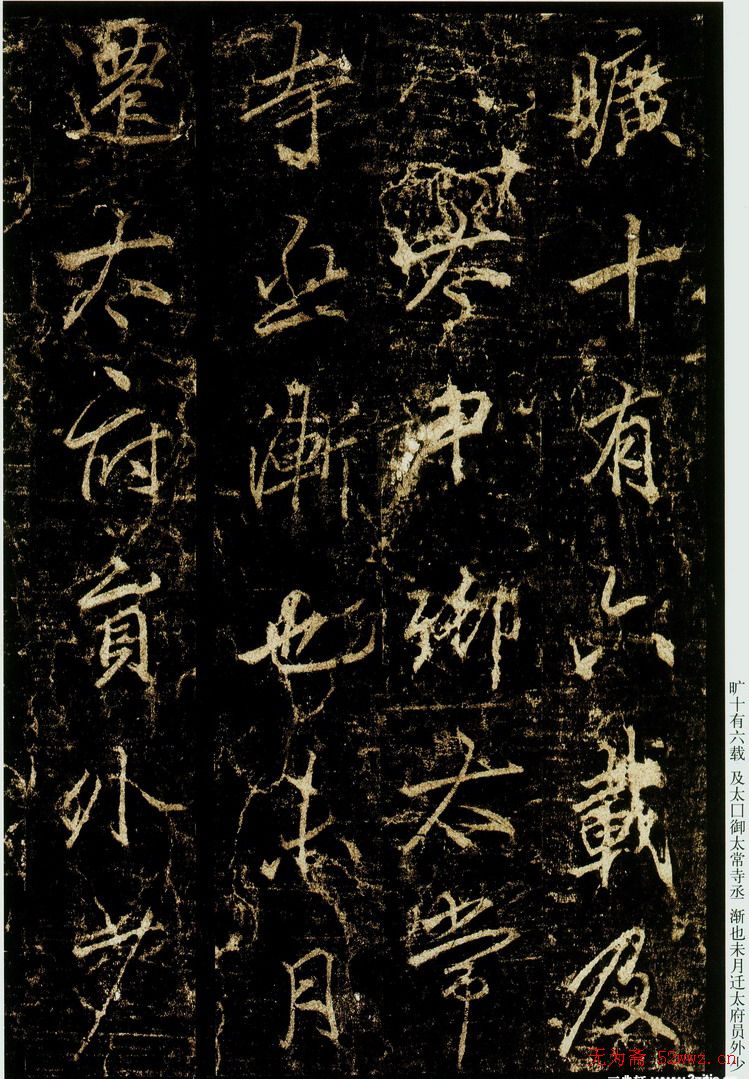 曠十有六載及
中御太常
寺丞漸也未月
遷太府員外少
旷十有六载 及太口御太常寺丞 渐也未月迁太府员外少
无为斋 52wwz.cn